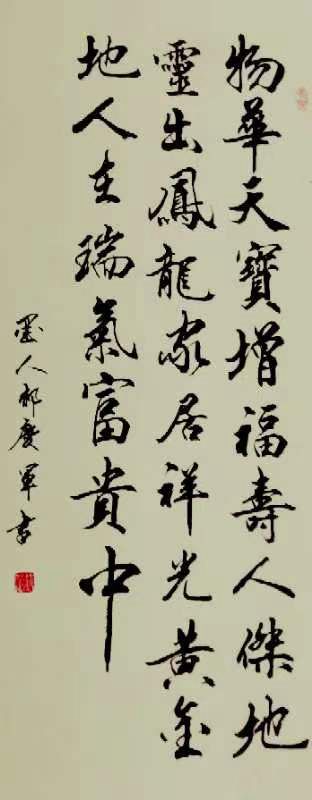 物華天寶增福壽人傑地
靈出鳳龍家居祥光黃金
地人在瑞氣富貴中
墨人郝慶軍書